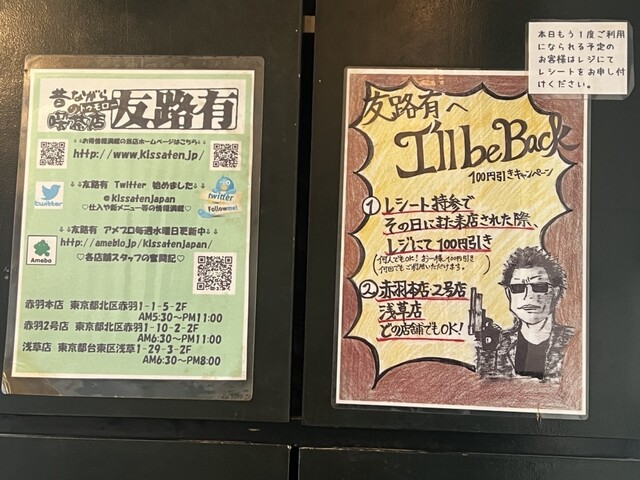 昔ながらの
トゥモロー
喫茶店
友路有
↓↓お得情報満載の当店ホームページはこちら↓↓
http://www.kissaten.jp/
↓↓友路有 Twitter 始めました↓↓
@kissatenjapan
♡仕入や新メニュー等の情報満載♡
twitter
twitter
Follow me!
↓↓友路有 アメブロ毎週水曜日更新中↓↓
http://ameblo.jp/kissatenjapan/
♡各店舗スタッフの奮闘記♡
Ameba
赤羽本店 東京都北区赤羽1-1-5-2F
AM5:30～PM11:00
赤羽2号店 東京都北区赤羽1-10-2-2F
AM6:30～PM11:00
浅草店 東京都台東区浅草1-29-3-2F
AM6:30～PM8:00
友路有へ
I'll be Back
100円引きキャンペーン
① レシート持参で
その日にまた来店された際、
レジにて100円引き
(何人でもOK! お一人様100円引き
何回でもご利用いただけます。)
② 赤羽本店・2号店
浅草店
どの店舗でもOK!
本日もう1度ご利用
になられる予定の
お客様はレジにて
レシートをお申し付
けください。